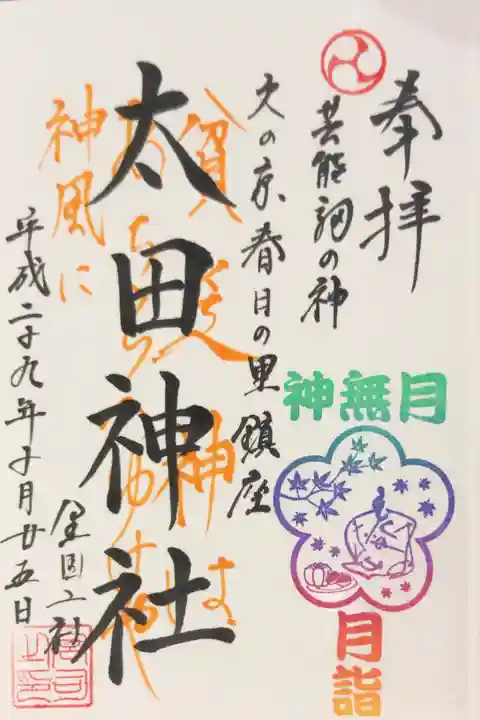 奉拝
芸能の神
文の京春日の里鎮座
太田神社
貧乏神は
神風に
平成二十九年十月廿五日
神無月
月詣